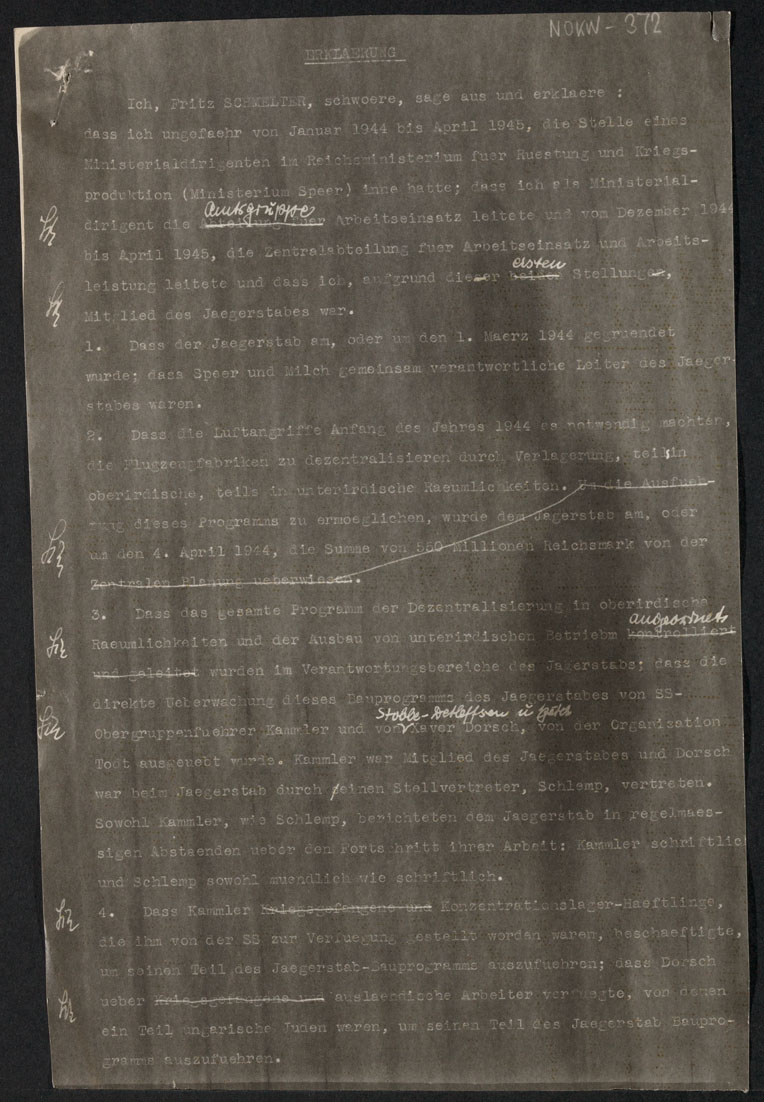 NOKW - 372
ERKLAERUNG
Ich, Fritz SCHMELTER, schwoere, sage aus und erklaere :
dass ich ungefaehr von Januar 1944 bis April 1945, die Stelle eines
Ministerialdirigenten im Reichsministerium fuer Ruestung und Kriegs-
produktion (Ministerium Speer) inne hatte; dass ich als Ministerial-
Amtsgruppe
dirigent die Abteilung fuer Arbeitseinsatz leitete und vom Dezember 1944
bis April 1945, die Zentralabteilung fuer Arbeitseinsatz und Arbeits-
ersten
leistung leitete und dass ich, aufgrund dieser beiden Stellungen,
Mitglied des Jaegerstabes war.
1. Dass der Jaegerstab am, oder um den 1. Maerz 1944 gegruendet
wurde; dass Speer und Milch gemeinsam verantwortliche Leiter des Jaeger-
stabes waren.
2. Dass die Luftangriffe Anfang des Jahres 1944 es notwendig machten,
die Flugzeugfabriken zu dezentralisieren durch Verlagerung, teils in
oberirdische, teils in unterirdische Raeumlichkeiten. Um die Ausfueh-
rung dieses Programms zu ermoeglichen, wurde dem Jägerstab am, oder
um den 4. April 1944, die Summe von 550 Millionen Reichsmark von der
Zentralen Planung ueberwiesen.
3. Dass das gesamte Programm der Dezentralisierung in oberirdische
angeordnet
Raeumlichkeiten und der Ausbau von unterirdischen Betriebm kontrolliert
und geleitet wurden im Verantwortungsbereiche des Jägerstabs; dass die
direkte Ueberwachung dieses Bauprogramms des Jaegerstabes von SS-
Stobbe-Detleffsen u
Obergruppenfuehrer Kammler und von Xaver Dorsch, von der Organization
Todt ausgeuebt wurde. Kammler war Mitglied des Jaegerstabes und Dorsch
war beim Jaegerstab durch seinen Stellvertreter, Schlemp, vertreten.
Sowohl Kammler, wie Schlemp, berichteten dem Jaegerstab in regelmaes-
sigen Abstaenden ueber den Fortschritt ihrer Arbeit: Kammler schriftlich
und Schlemp sowohl muendlich wie schriftlich.
4. Dass Kammler Kriegsgefangene und Konzentrationslager-Haeftlinge,
die ihm von der SS zur Verfuegung gestellt worden waren, beschaeftigte,
um seinen Teil des Jaegerstab-Bauprogramms auszufuehren; dass Dorsch
ueber Kriegsgefangene und auslaendische Arbeiter verfuegte, von denen
ein Teil ungarische Juden waren, um seinen Teil des Jaegerstab Baupro-
gramms auszufuehren.